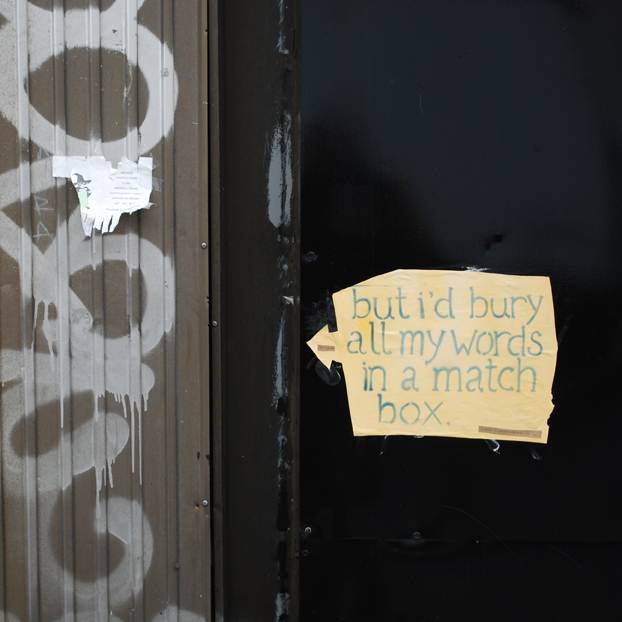 but i'd bury
all my words
in a match
box.